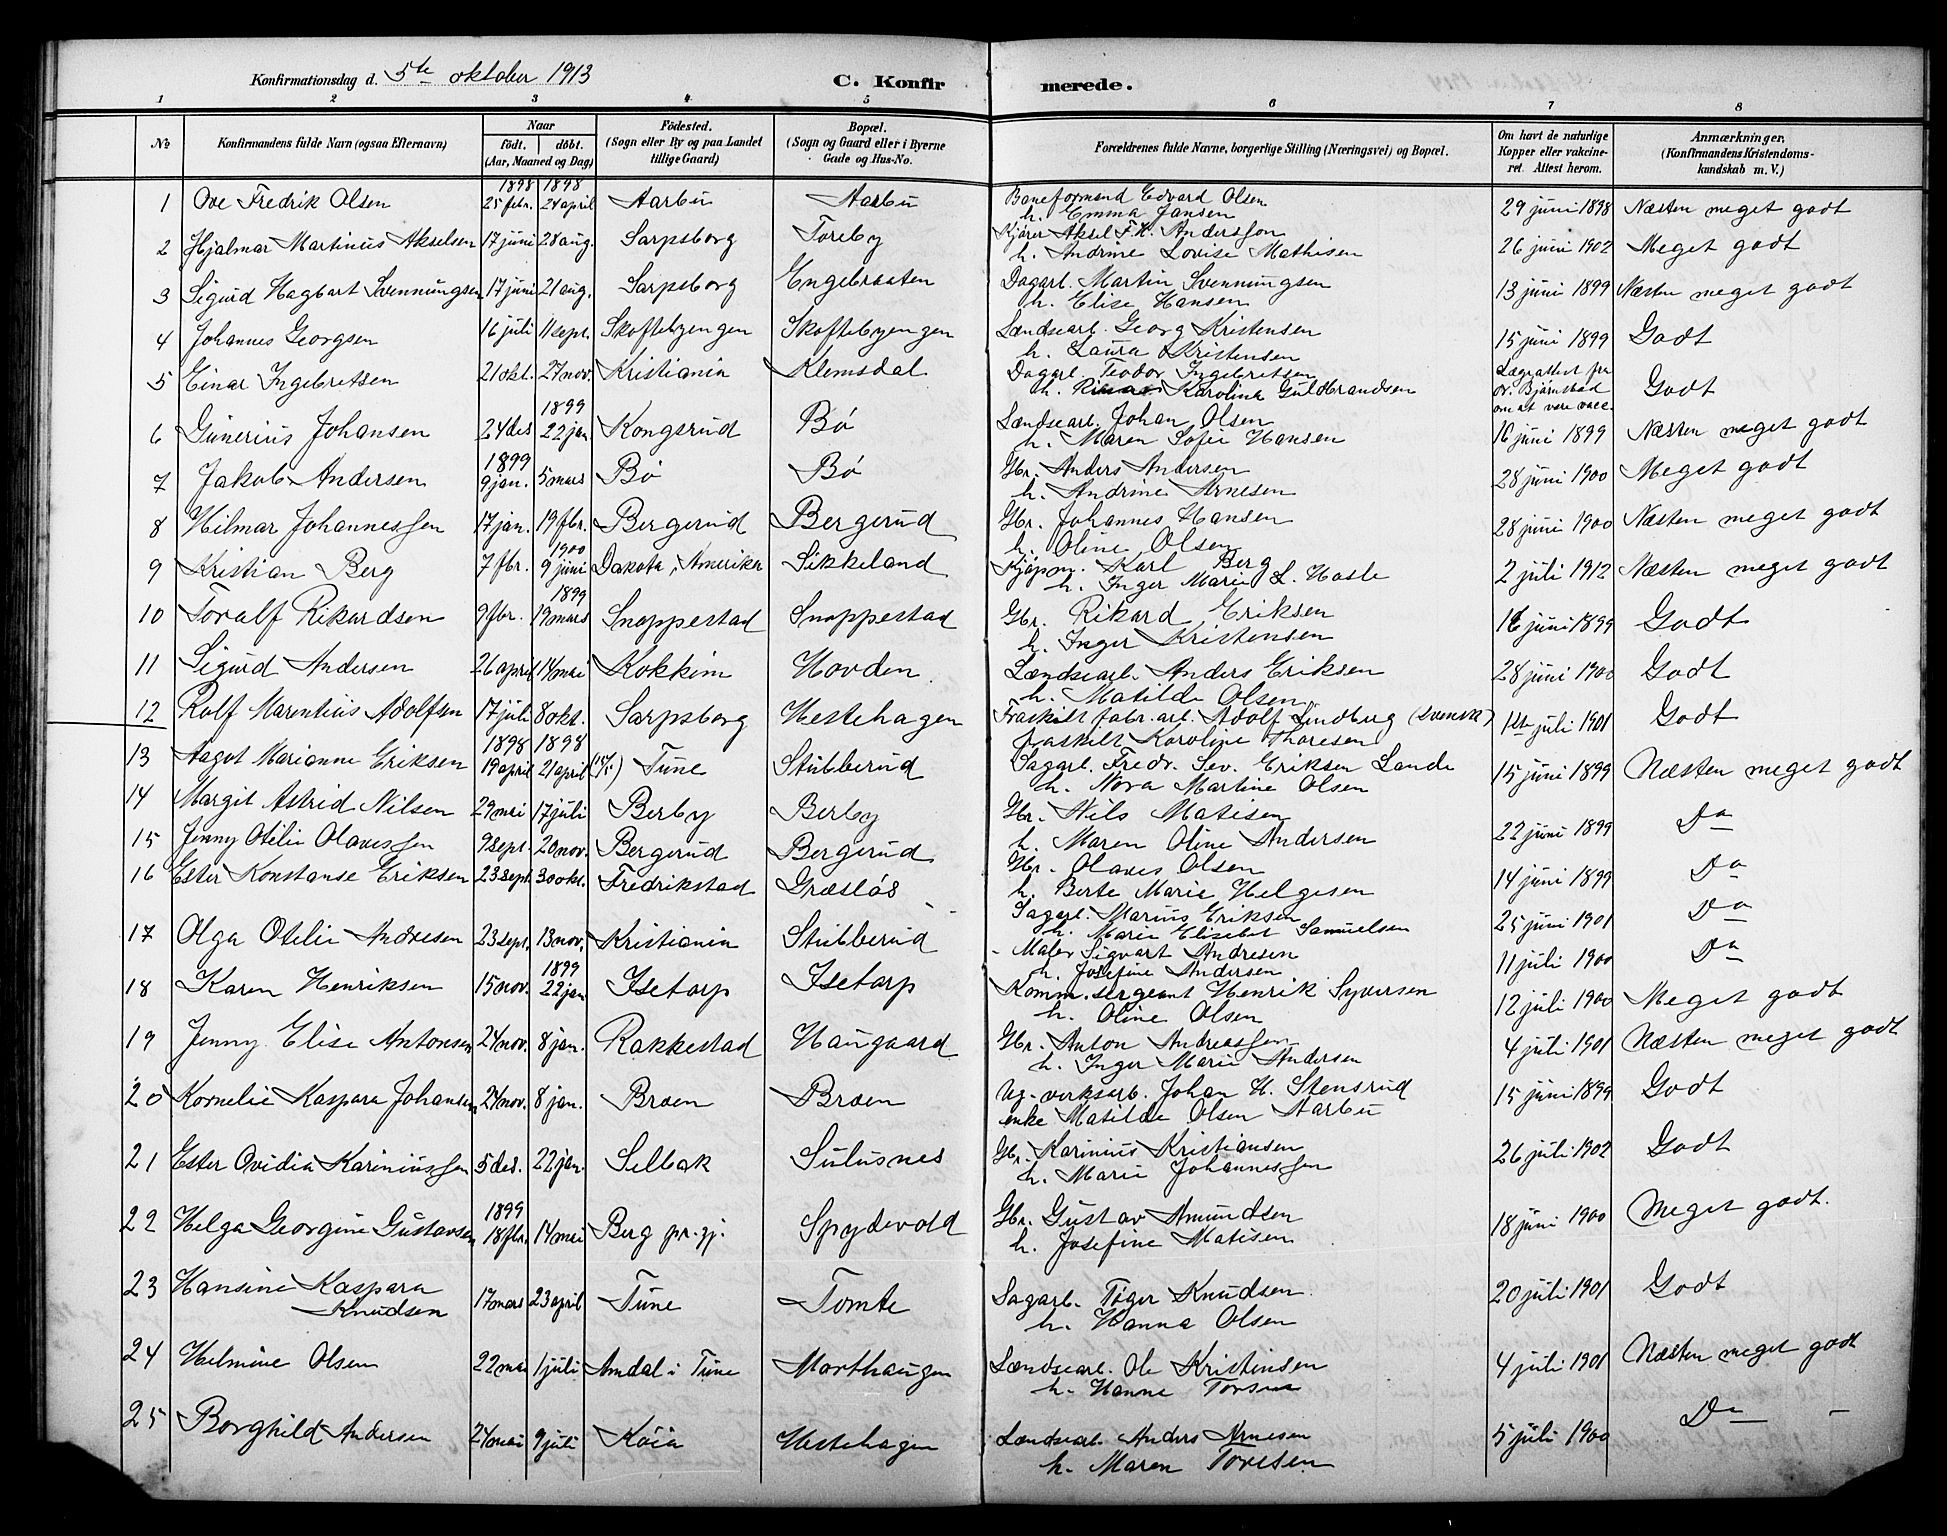 Konfirmationsdag d. 5te oktober 1913 C. Konfirmerede.
1 2 3 4 5 6 7 8
№ Konfirmandens fulde Navn (ogsaa Efternavn) Naar født. døbt. (Aar, Maaned og Dag) Fødested. (Sogn eller By og paa Landet tillige Gaard) Bopæl. (Sogn og Gaard eller i Byerne Gade og Hus-No. Forældrenes fulde Navne, borgerlige Stilling (Næringsvei) og Bopæl. Om havt de naturlige Kopper eller vakcineret. Attest herom. Anmærkninger, (Konfirmandens Kristendomskundskab m. V.)
1 Ove Fredrik Olsen 1898 25 febr. 1898 24 april Aarbu Aarbu Baneformand Edvard Olsen 29 juni 1898 Næsten meget godt
h. Emma Jansen
2 Hjalmar Martinus Akselsen 17 juni 28 aug. Sarpsborg Toreby Kjører Aksel F.H. Anderssen 26 juni 1902 Meget godt
h. Andrine Lovise Mathisen
3 Sigurd Hagbart Svenningsen 17 juni 21 aug. Sarpsborg Engebraaten Dagarb. Martin Svenningsen 13 juni 1899 Næsten meget godt
h. Elise Hansen
4 Johannes Georgsen 16 juli 11 sept. Skoftebyengen Skoftebyengen Lændsearb. Georg Kristensen 15 juni 1899 Godt
h. Laura Kristensen
5 Einar Ingebretsen 21 okt. 27 nov. Kristiania Klemsdal Dagarb. Teodor Ingebretsen Lægeattest fra dr. Bjørnstad om at være vacc. Godt
h. Karolina Guldbrandsen
6 Gunerius Johansen 24 des 1899 22 jan. Kongsrud Bø Lændsearb. Johan Olsen 16 juni 1899 Næsten meget godt
h. Maren Sofie Hansen
7 Jakob Andersen 1899 9 jan. 5 mars Bø Bø Gbr. Anders Andersen 28 juni 1900 Meget godt
h. Andrine Arnesen
8 Hilmar Johannessen 17 jan. 19 fbr. Bergerud Bergerud Gbr. Johannes Hansen 28 juni 1900 Næsten meget godt
h. Oline Olsen
9 Kristian Berg 7 fbr. 1900 9 juni Dakota, Amerika Sikkeland Kjøpm. Karl Berg 2 juli 1912 Næsten meget godt
h. Inger Marie L. Hasle
10 Toralf Rikardsen 9 fbr. 1899 19 mars Snoppestad Snoppestad Gbr. Rikard Eriksen 16 juni 1899 Godt
h. Inger Kristensen
11 Sigurd Andersen 26 april 14 mai Kokkim Hovden Lændsearb. Anders Eriksen 28 juni 1900 Godt
h. Matilde Olsen
12 Rolf Marentius Adolfsen 17 juli 8 okt. Sarpsborg Hestehagen Fraskilt fabr. arb. Adolf Lindberg (svensk) 1ste juli 1901 Godt
fraskilt Karoline Thoresen
13 Aagot Marianne Eriksen 1898 19 april 1898 21 april Tune Stubberud Sagarb. Fredr. Sev. Eriksen Lande 15 juni 1899 Næsten meget godt
h. Nora Martine Olsen
14 Margit Astrid Nilsen 29 mai 17 juli Berby Berby Gbr. Nils Matisen 22 juni 1899 Do
h. Maren Oline Andersen
15 Jenny Otilie Olavessen 9 sept. 20 nov. Bergerud Bergerud Gbr. Olaves Olsen 14 juni 1899 Do
h. Berte Marie Helgesen
16 Ester Konstanse Eriksen 23 sept 30 okt. Fredrikstad Græsløs Sagarb. Marius Eriksen 25 juni 1901 Do
h. Marie Elisabet Samuelsen
17 Olga Otilie Andresen 23 sept. 13 nov. Kristiania Stubberud Maler Sigvart Andresen 11 juli 1900 Do
h. Josefine Andersen
18 Karen Henriksen 15 nov. 1899 22 jan Isetorp Isetorp Komm. sergeant Henrik Syversen 12 juli 1900 Meget godt
h. Oline Olsen
19 Jenny Elise Antonsen 24 nov. 8 jan. Rakkestad Haugaard Gbr. Anton Andreassen 4 juli 1901 Næsten meget godt
h. Inger Marie Andersen
20 Kornelie Kaspara Johansen 24 nov. 8 jan. Braen Braen Ug. verksarb. Johan H. Stensrud 15 juni 1899 Godt
enke Matilde Olsen Aarbu
21 Ester Ovidia Kariniussen 5 des. 22 jan. Selbak Sulusnes Gbr. Karinius Kristiansen 26 juli 1902 Godt
h. Marie Johannessen
22 Helga Georgine Gustavsen 1899 18 fbr. 14 mai Berg pr.gj. Spydevold Gbr. Gustav Amundsen 18 juni 1900 Meget godt.
h. Josefine Matisen
23 Hansine Kaspara Knudsen 17 mars 23 april Tune Tomte Sagarb. Tøger Knudsen 20 juli 1901 Godt
h. Hanna Olsen
24 Helmine Olsen 22 mai 1 juli Amdal i Tune Morthaugen Lændsearb. Ole Kristinsen 4 juli 1901 Næsten meget godt
h. Hanne
25 Borghild Andersen 24 mai 9 juli Kaia Hestehagen Lændsearb. Anders Arnesen 5 juli 1900 Do
h. Maren Toresen